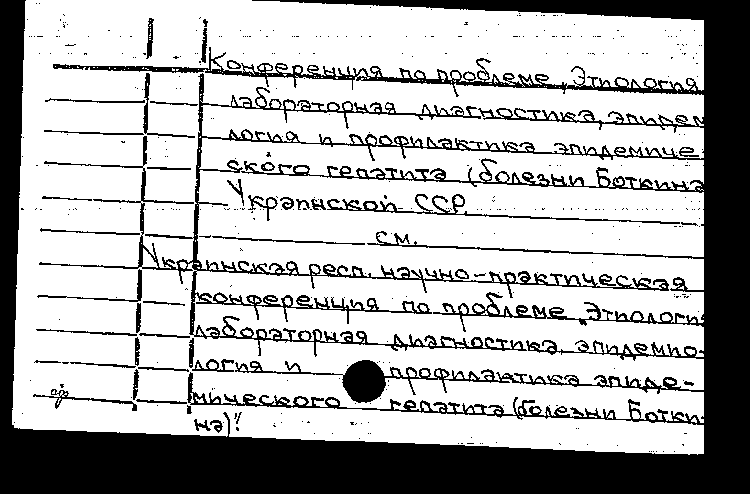 Конференция по проблеме „Этиология
лабораторная диагностика, эпидем
логия и профилактика эпидемиче
ского гепатита (болезни Боткина
Украинской ССР.
см.
Украинская респ. научно-практическая
конференция по проблеме „Этиология
лабораторная диагностика, эпидемио-
логия и профилактика эпиде-
мического гепатита (болезни Ботки-
на)"